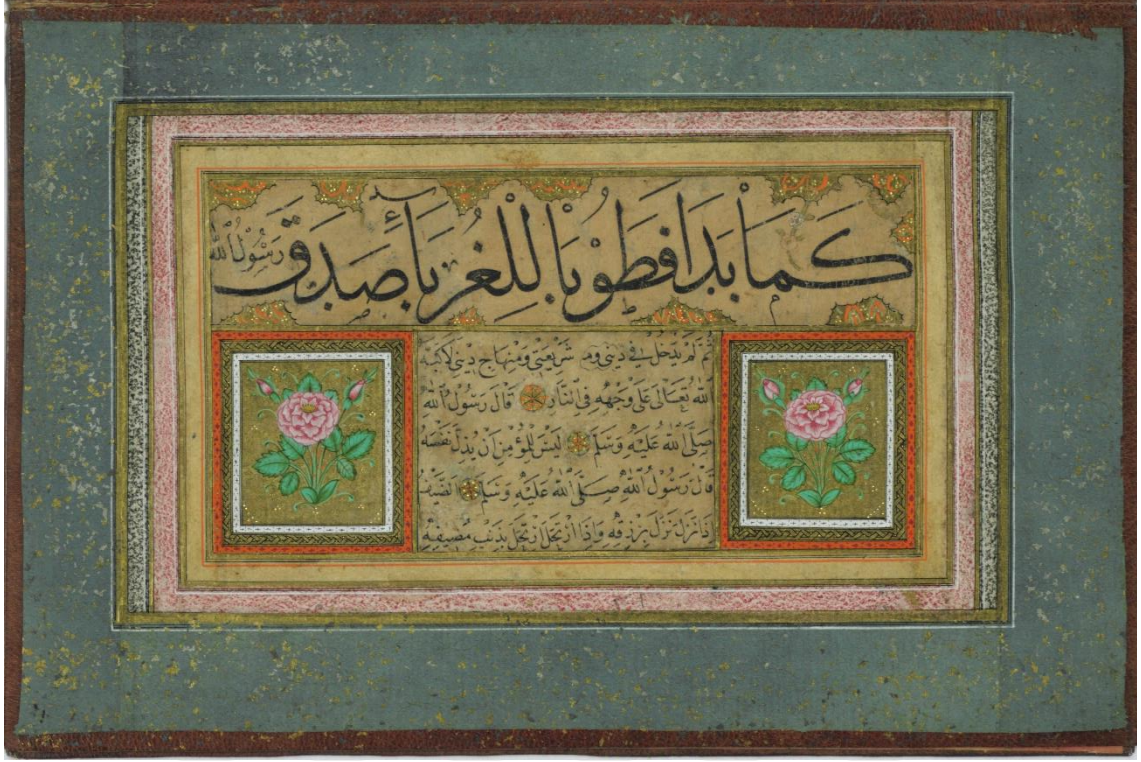 كَمَا بَدَا فَطُوْبَا لِلْغُرَبَآءِ صَدَقَ رَسُوْلُ اللّٰه
ثم لم يدخل في ديني ومن شريعتي ومنهاج ديني لاكبه
الله تعالى على وجهه في النار قال رسول الله
صلى الله عليه وسلم ليس للمؤمن ان يذل نفسه
قال رسول الله صلى الله عليه وسلم الضيف
اذا نزل نزل برزقه واذا ارتحل ارتحل بذنب مضيفه